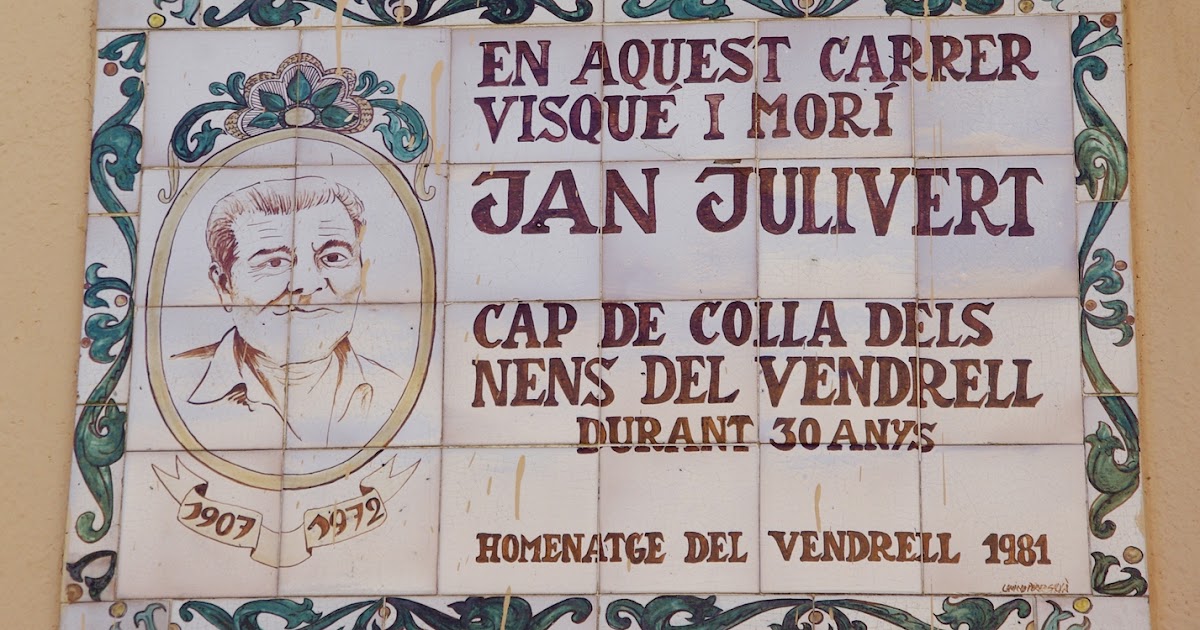 EN AQUEST CARRER
VISQUÉ I MORÍ
JAN JULIVERT
CAP DE COLLA DELS
NENS DEL VENDRELL
DURANT 30 ANYS
1907 1972
HOMENATGE DEL VENDRELL 1981